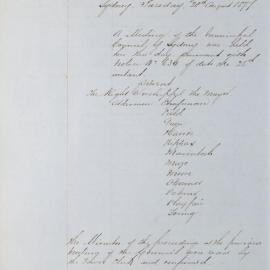 Sydney, Tuesday, 28th August 1877
A Meeting of the Municipal
Council of Sydney was held
on this day, pursuant with
Notice No 636 of date the 25th
instant
Present
The Right Worshipful the Mayor
Aldermen Chapman
Field
Green
Hanson
Kippax
McMahon
Meyer
Moore
O'Connor
Palmer
Playfair
Young
The Minutes of the proceedings at the previous
Meeting of the Council were read by
the Town Clerk and confirmed